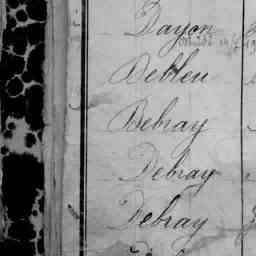 Dayon
Debleu
Debray
Debray
Debray